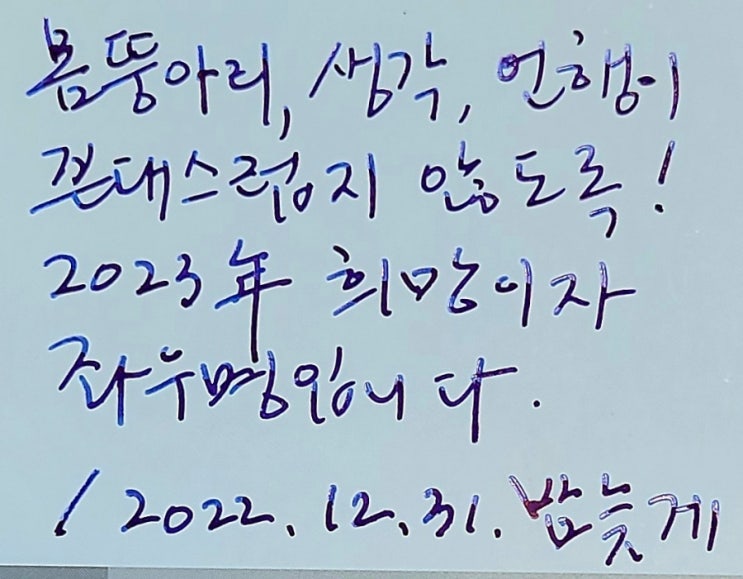 몸뚱아리, 생각, 언행이
꼰대스럽지 않도록!
2023年 희망이자
좌우명입니다.
/2022.12.31. 밤늦게